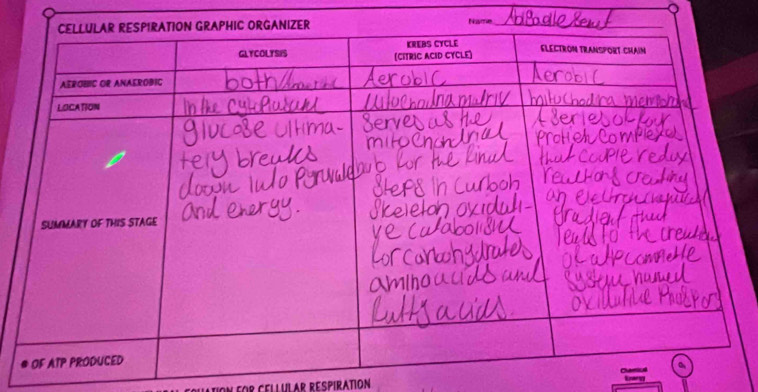 CELLULAR RESPIRATION GRAPHIC ORGANIZER
Name
GLYCOLYSIS
KREBS CYCLE
(CITRIC ACID CYCLE)
ELECTRON TRANSPORT CHAIN
AEROBIC OR ANAEROBIC
both
Aerobic
Aerobic
LOCATION
in the
mitochodria
glucose ultima-
tely breaks
down into Pyruvate
and energy.
serves as the
mitochondrial
hub for the final
steps in carbon
skeleton oxidati-
ve catabolism
for carbohydrates
amino acids and
fatty acids.
A series of four
protien complexes
that couple redux
reactions creating
an
gradient that
leads to the
of atp complete
system named
SUMMARY OF THIS STAGE
# OF ATP PRODUCED
FOR CELLULAR RESPIRATION
Chemical
Energy